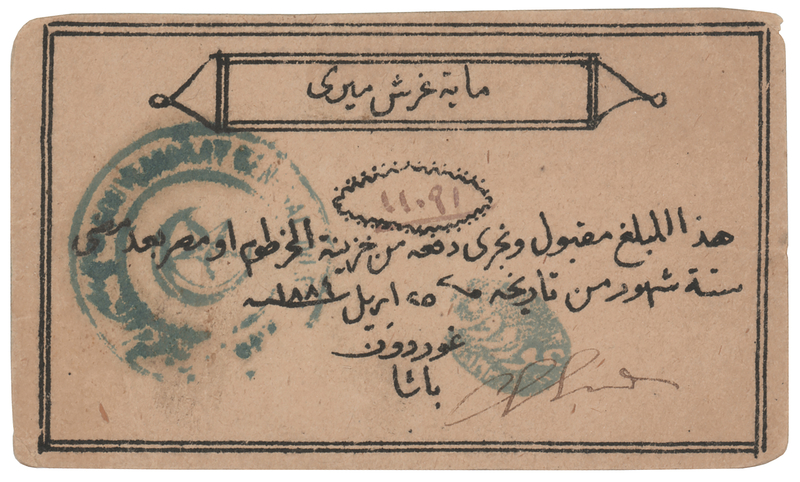 ماية غرش ميرى
١١٠٩١
هذا المبلغ مقبول ونجرى دفعه من خزينة الخرطوم او مصر بعد مضى
ستة شهور من تاريخه ٢٥ ابريل ١٨٨٤ سنه
غوردون
باشا